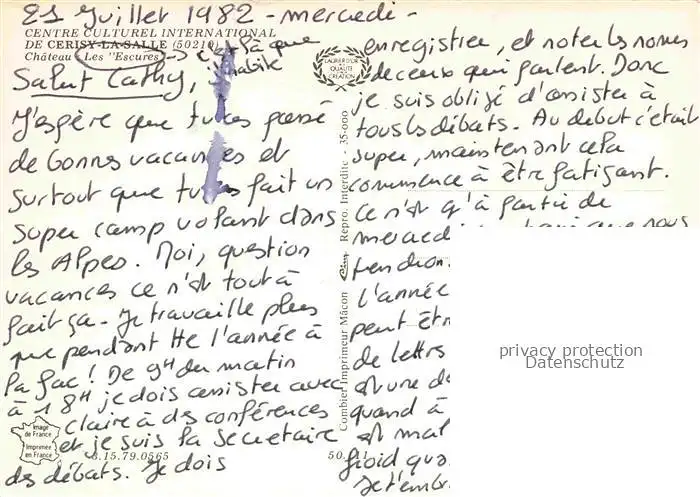 21 Juillet 1982 - mercredi -
CENTRE CULTUREL INTERNATIONAL
DE CERISY-LA-SALLE (50210)
Château "Les Escures" → c'est là que
j'habite
Salut Cathy,
J'espère que tu as passé
de bonnes vacances et
surtout que tu as fait un
super camp volant dans
les Alpes. Moi, question
vacances ce n'est tout à
fait ça. Je travaille plus
que pendant tte l'année à
la fac ! De 9H du matin
à 18H je dois assister avec
Claire à des conférences
et je suis la secrétaire
des débats. Je dois
Image de France
Imprimée en France
3.15.79.0565
50.
LAURIER D'OR
QUALITÉ
CRÉATION
Combier Imprimeur Mâcon Repro. Interdite - 35-000
enregistrer, et noter les noms
de ceux qui parlent. Donc
je suis obligé d'assister à
tous les débats. Au début c'était
super, maintenant cela
commence à être fatigant.
Ce n'est qu'à partir de
mercredi que nous
l'année
peut êtr
de lettres
est une d
quand à
est mal
froid qua
septemb
privacy protection
Datenschutz